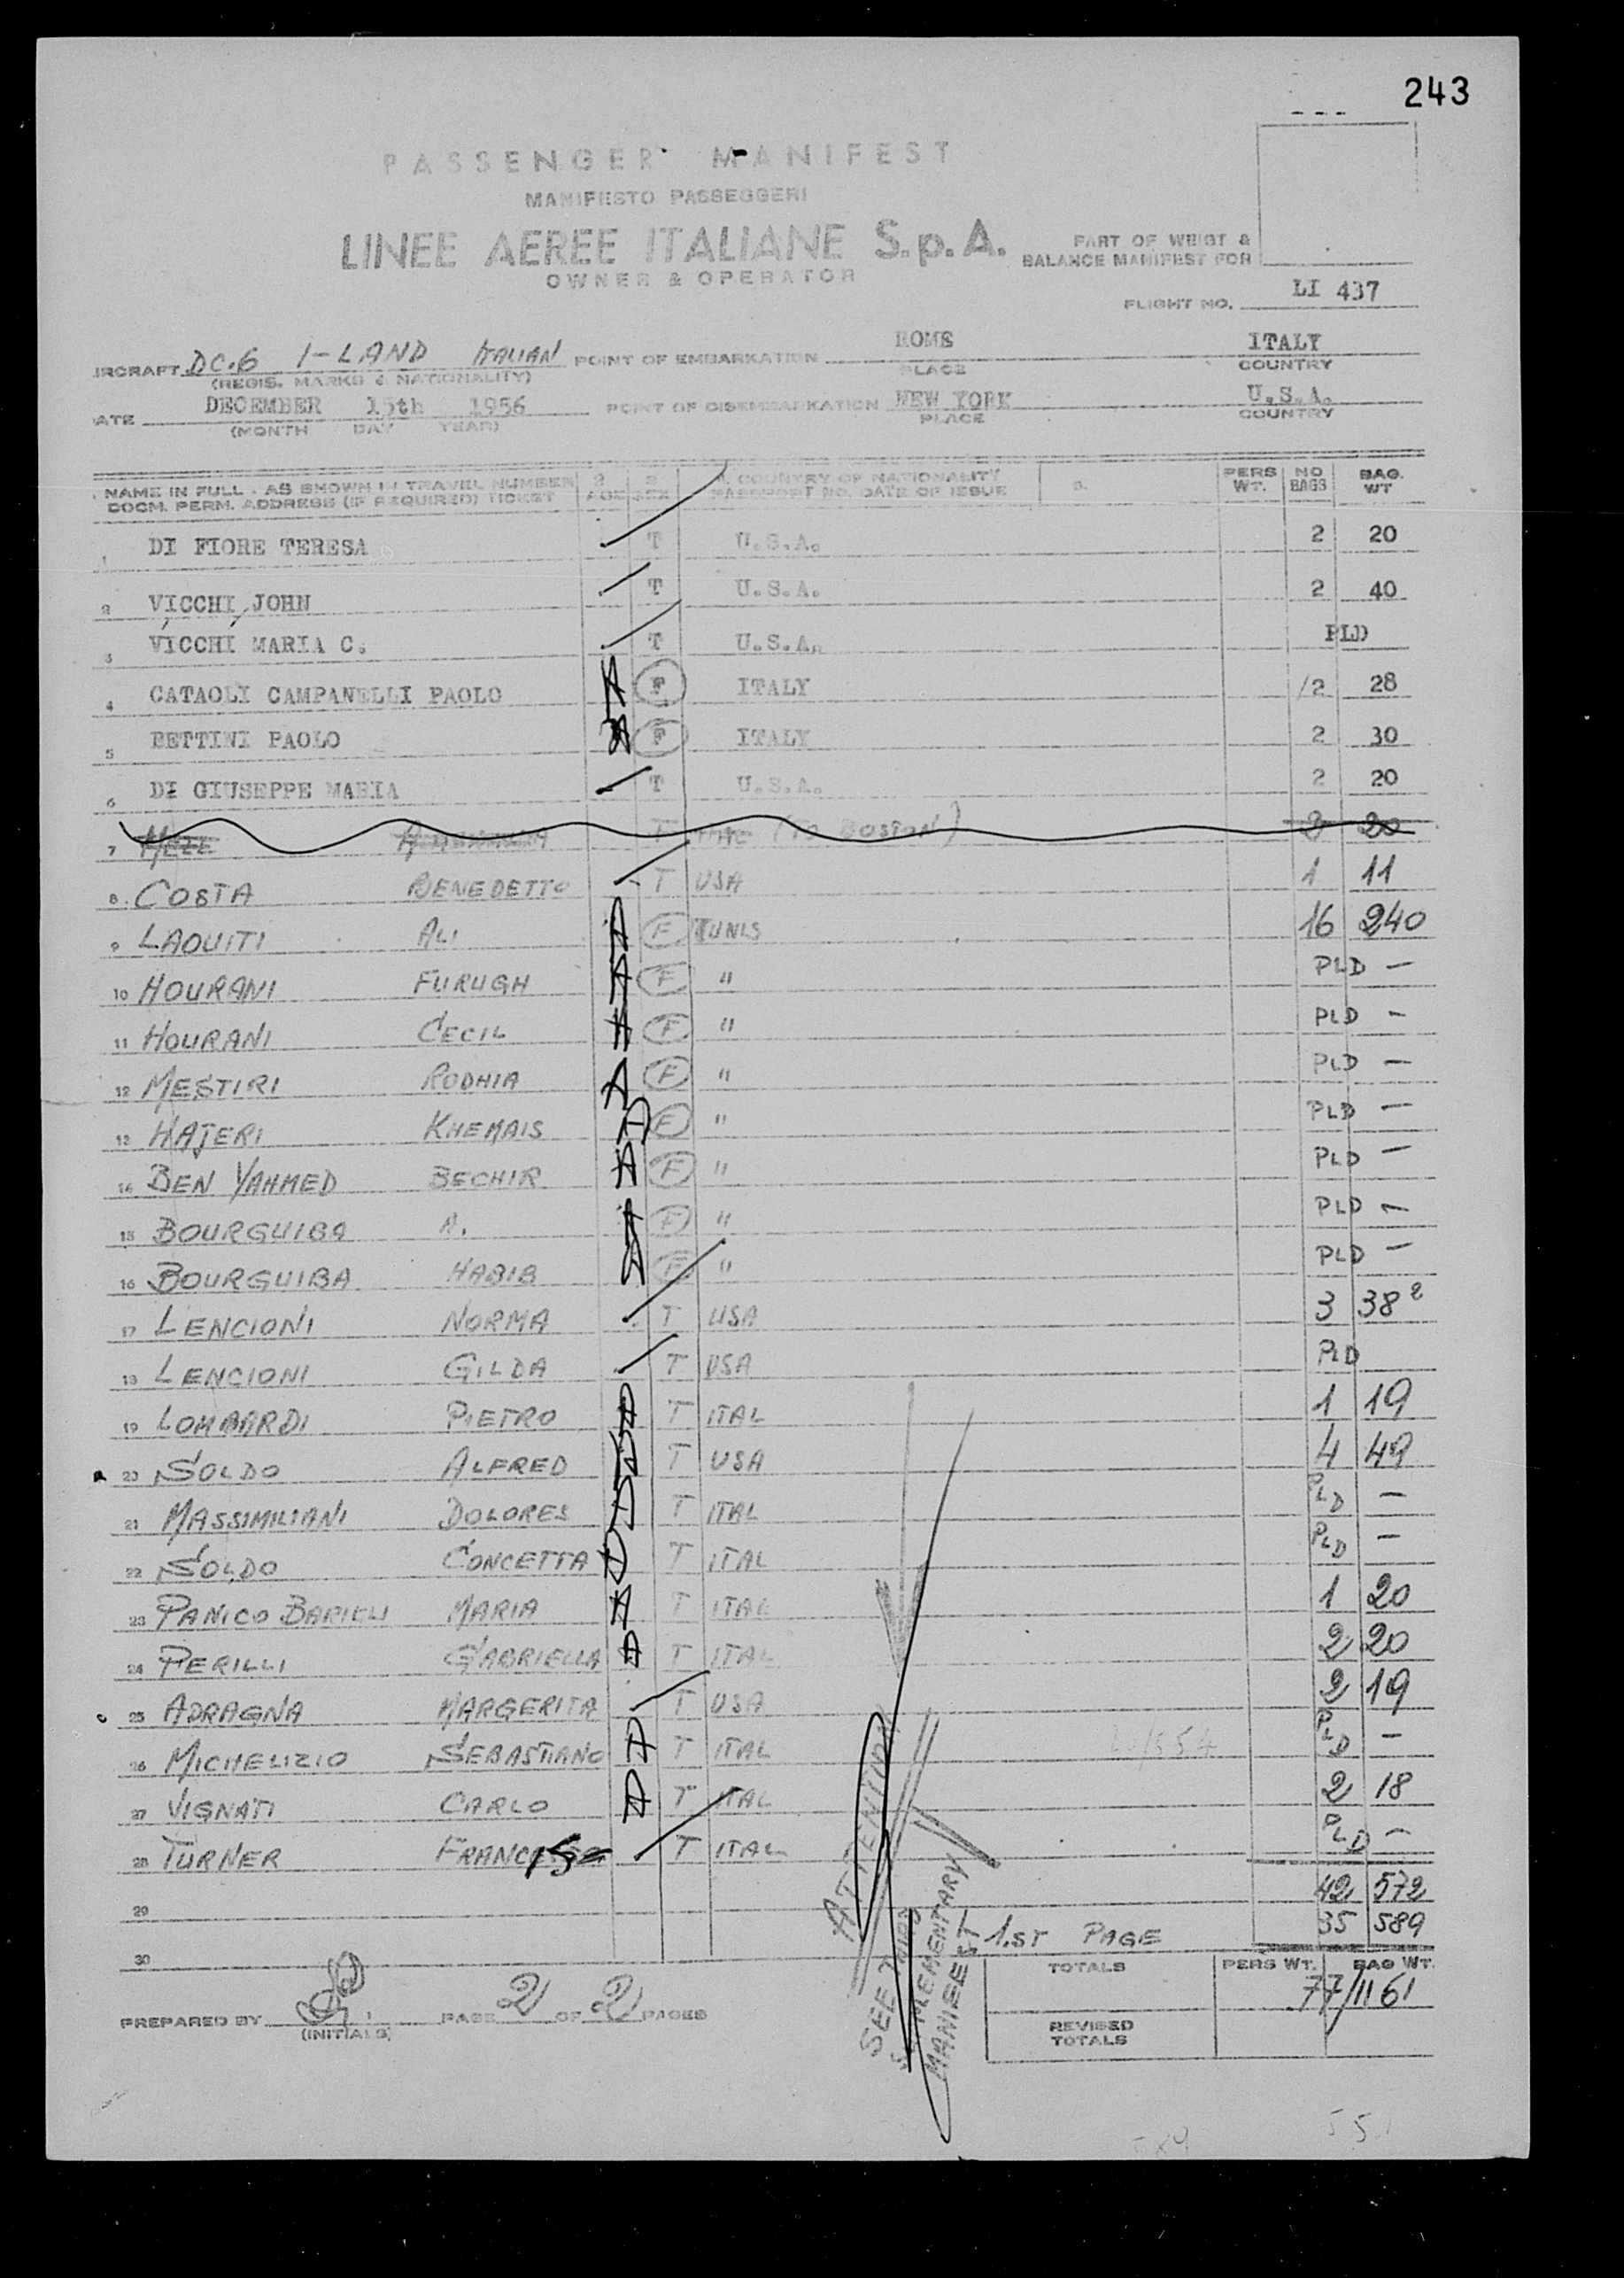 243
PASSENGER MANIFEST
MANIFESTO PASSEGGERI
LINEE AEREE ITALIANE S.p.A.
OWNER & OPERATOR
PART OF WEIGT &
BALANCE MANIFEST FOR
FLIGHT NO. LI 437
IRCRAFT DC.6 I-LAND ITALIAN POINT OF EMBARKATION ROME ITALY
(REGIS. MARKS & NATIONALITY) PLACE COUNTRY
ATE DECEMBER 15th 1956 POINT OF DISEMBARKATION NEW YORK U.S.A.
(MONTH DAY YEAR) PLACE COUNTRY
NAME IN FULL - AS SHOWN IN TRAVEL NUMBER 2 3 4. COUNTRY OF NATIONALITY 5. PERS NO BAG.
DOCM. PERM. ADDRESS (IF REQUIRED) TICKET AGE SEX PASSPORT NO. DATE OF ISSUE WT. BAGS WT
1 DI FIORE TERESA T U.S.A. 2 20
2 VICCHI JOHN T U.S.A. 2 40
3 VICCHI MARIA C. T U.S.A. PLD
4 CATAOLI CAMPANELLI PAOLO F ITALY /2 28
5 BETTINI PAOLO F ITALY 2 30
6 DI GIUSEPPE MARIA T U.S.A. 2 20
7 T (TO BOSTON) 2 20
8 COSTA BENEDETTO T USA 1 11
9 LAOUITI ALI F TUNIS 16 240
10 HOURANI FURUGH F " PLD —
11 HOURANI CECIL F " PLD —
12 MESTIRI RODHIA F " PLD —
13 HAJERI KHEMAIS F " PLD —
14 BEN YAHMED BECHIR F " PLD —
15 BOURGUIBA A. F " PLD —
16 BOURGUIBA HABIB F " PLD —
17 LENCIONI NORMA T USA 3 38
18 LENCIONI GILDA T USA PLD
19 LOMBARDI PIETRO T ITAL 1 19
20 SOLDO ALFRED T USA 4 49
21 MASSIMILIANI DOLORES T ITAL PLD —
22 SOLDO CONCETTA T ITAL PLD —
23 PANICO BARILLI MARIA T ITAL 1 20
24 PERILLI GABRIELLA T ITAL 2 20
25 ADRAGNA MARGERITA T USA 2 19
26 MICHELIZIO SEBASTIANO T ITAL PLD —
27 VIGNATI CARLO T ITAL 2 18
28 TURNER T ITAL PLD —
42 572
29 1.ST PAGE 35 589
30
ATTENTION
SEE THIRD
SUPPLEMENTARY
MANIFEST
TOTALS PERS WT. BAG WT.
77/1161
PREPARED BY PAGE 2 OF 2 PAGES
(INITIALS)
REVISED
TOTALS